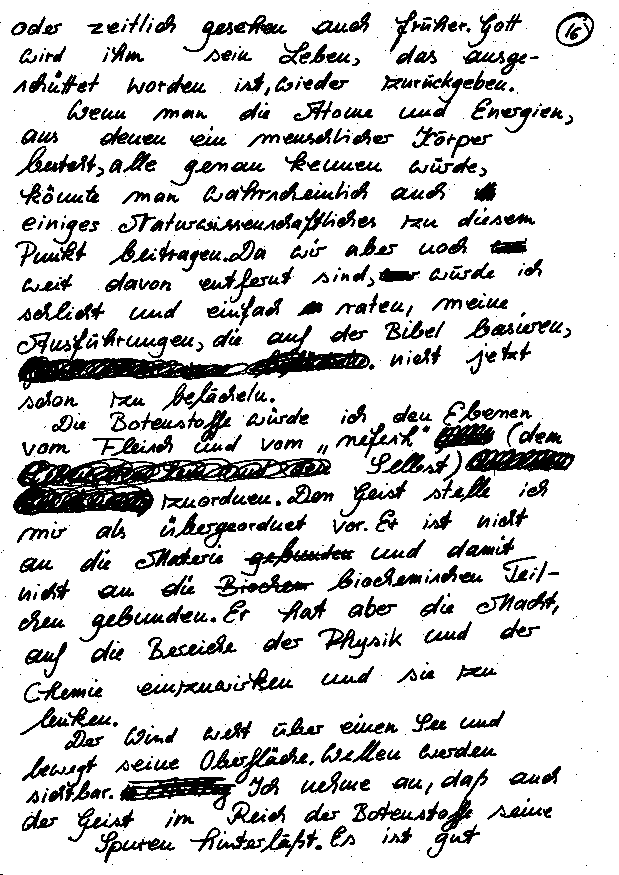 oder zeitlich gesehen auch früher. Gott
16
wird ihm sein Leben, das ausge-
schüttet worden ist, wieder zurückgeben.
Wenn man die Atome und Energien,
aus denen ein menschlicher Körper
besteht, alle genau kennen würde,
könnte man wahrscheinlich auch
einiges Naturwissenschaftliches zu diesem
Punkt beitragen. Da wir aber noch
weit davon entfernt sind, würde ich
schlicht und einfach raten, meine
Ausführungen, die auf der Bibel basieren,
nicht jetzt
schon zu belächeln.
Die Botenstoffe würde ich den Ebenen
vom Fleisch und vom „nefesh" (dem
Selbst)
zuordnen. Den Geist stelle ich
mir als übergeordnet vor. Er ist nicht
an die Materie gebunden und damit
nicht an die Biochem biochemischen Teil-
chen gebunden. Er hat aber die Macht,
auf die Bereiche der Physik und der
Chemie einzuwirken und sie zu
lenken.
Der Wind weht über einen See und
bewegt seine Oberfläche. Wellen werden
sichtbar. Ich nehme an, daß auch
der Geist im Reich der Botenstoffe seine
Spuren hinterläßt. Es ist gut